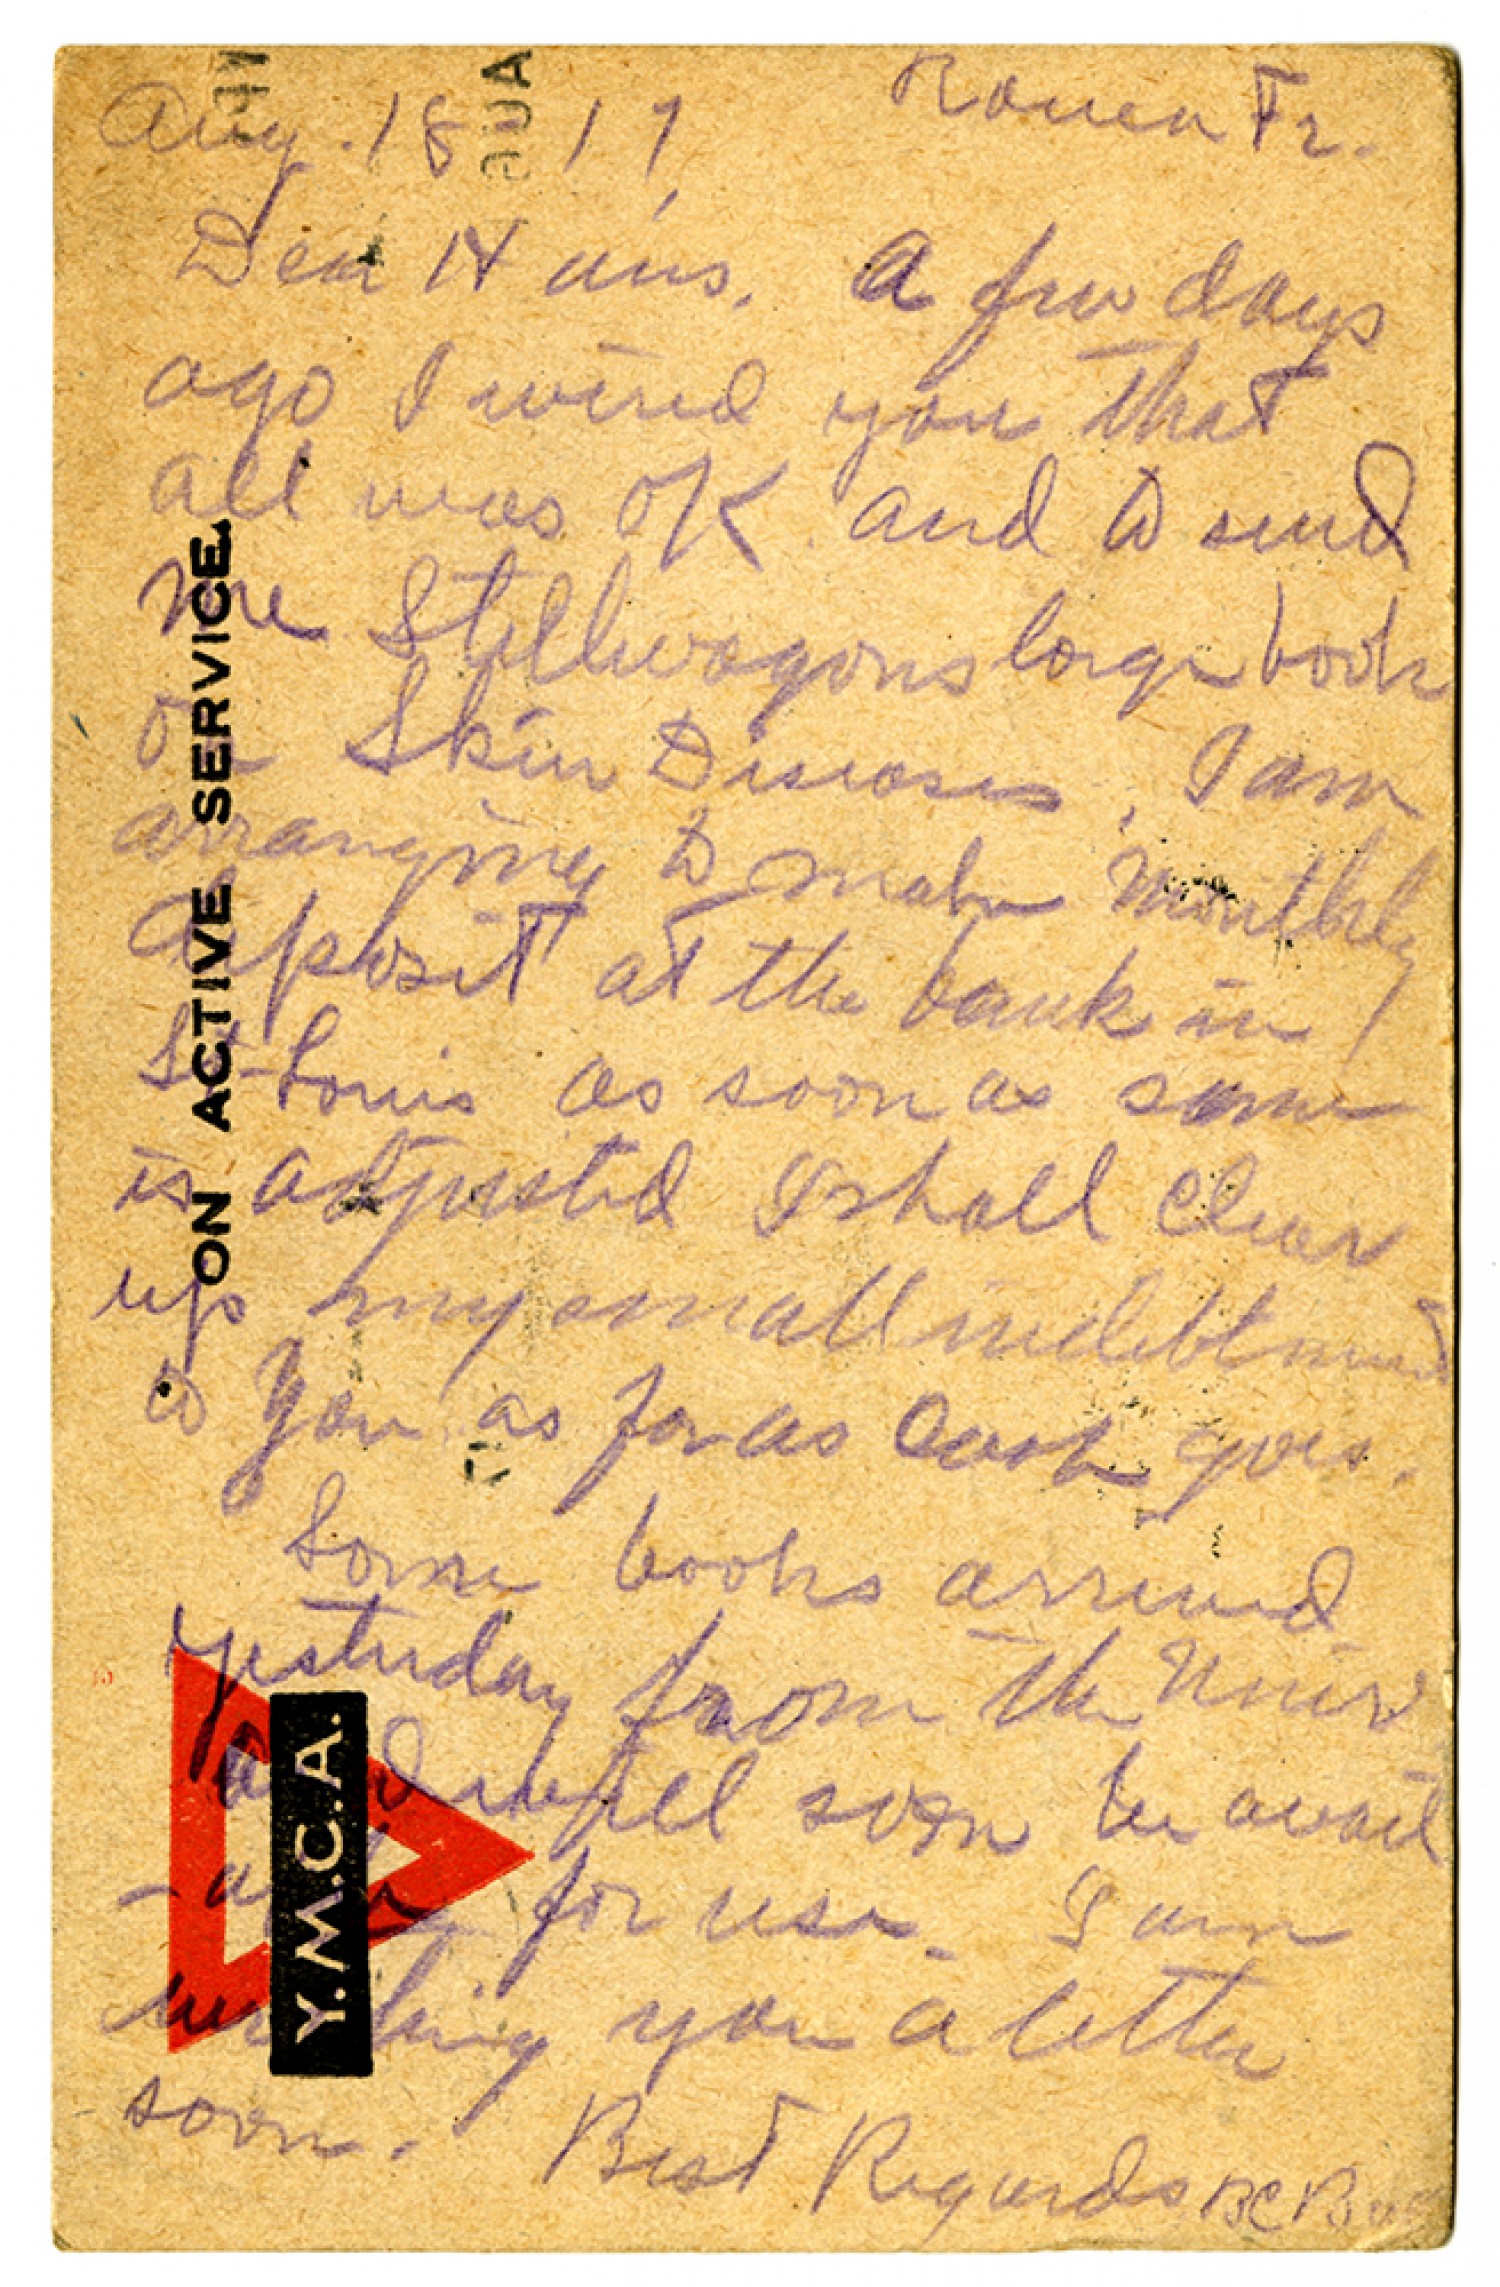 Aug. 18 17, Rouen Fr.
Dear Haus. A few days
ago I wired you that
all was OK and to send
me Stellwagons large book
on Skin Diseases. I am
arranging to make monthly
deposit at the bank in
St. Louis as soon as same
is adjusted I shall clear
up my small indebtment
to you as far as cash goes.
Some books arrived
yesterday from the Univ
and will soon be avail
-able for use. I am
writing you a letter
soon. Best Regards BC
ON ACTIVE SERVICE.
Y.M.C.A.